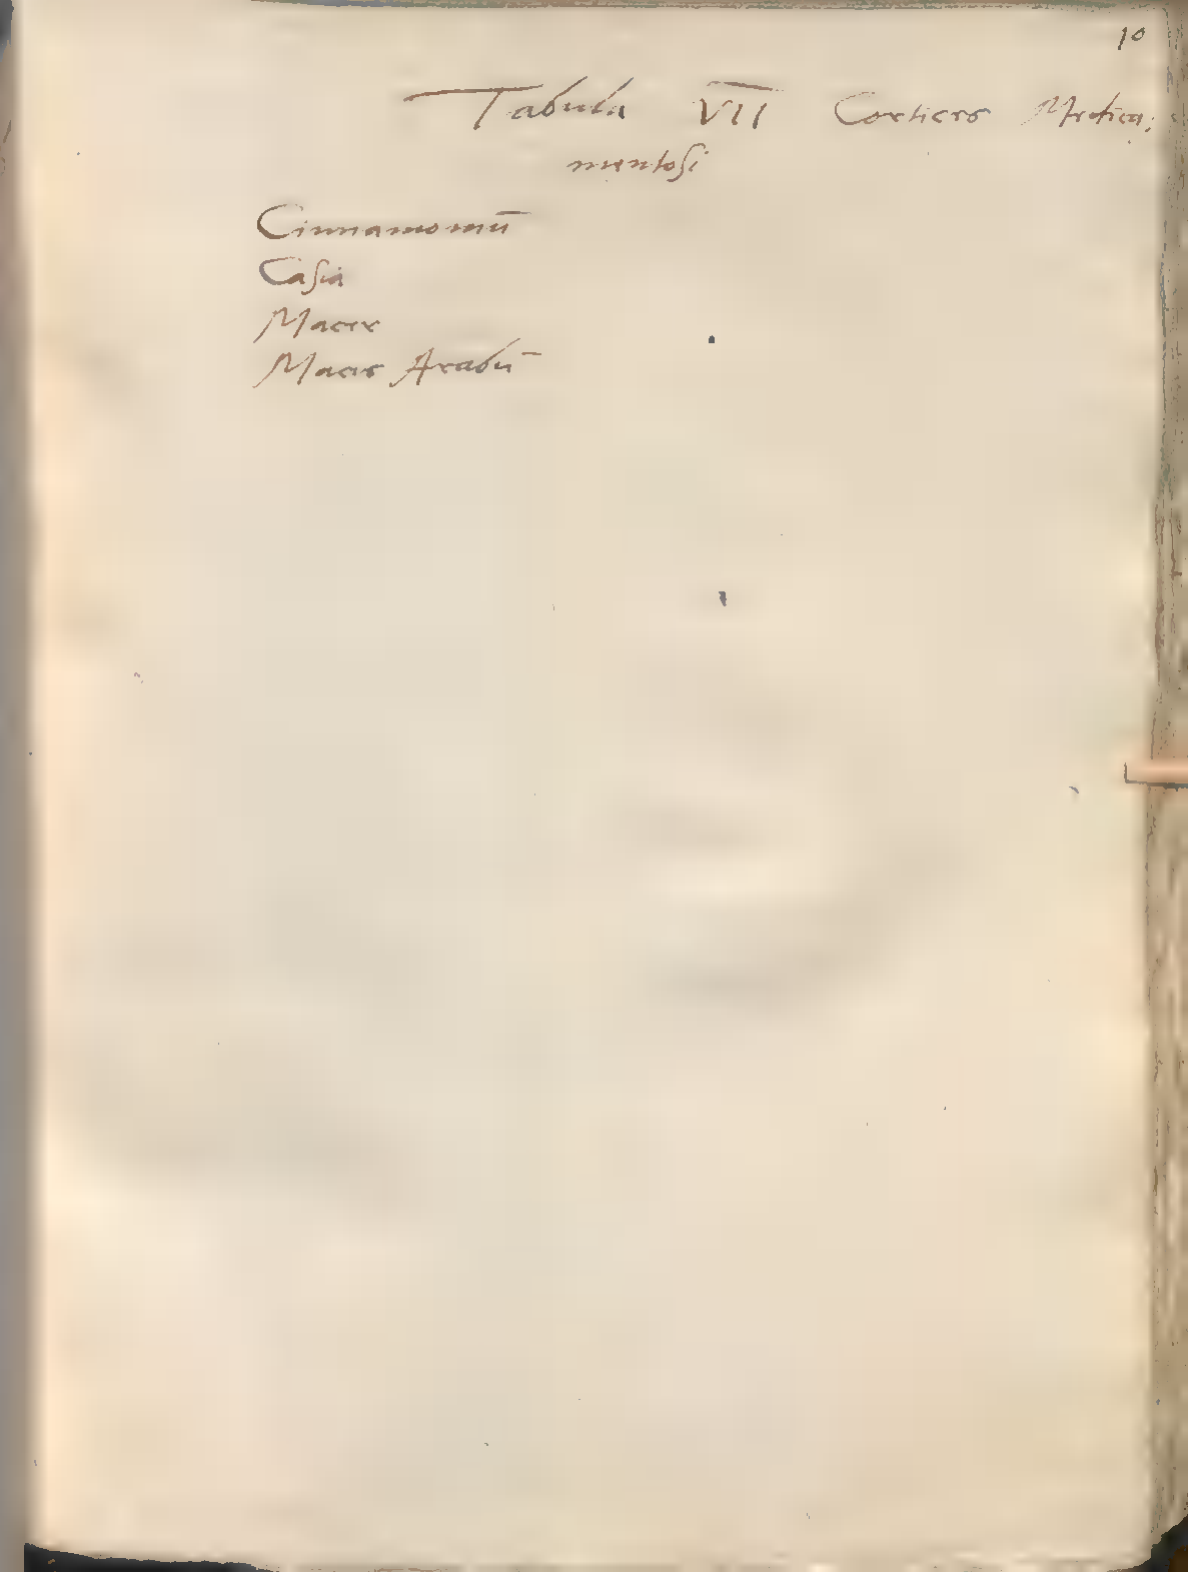 10
Tabula VII Cortices Medica,
mentosi
Cinnamomū
Casia
Macer
Macis Arabū